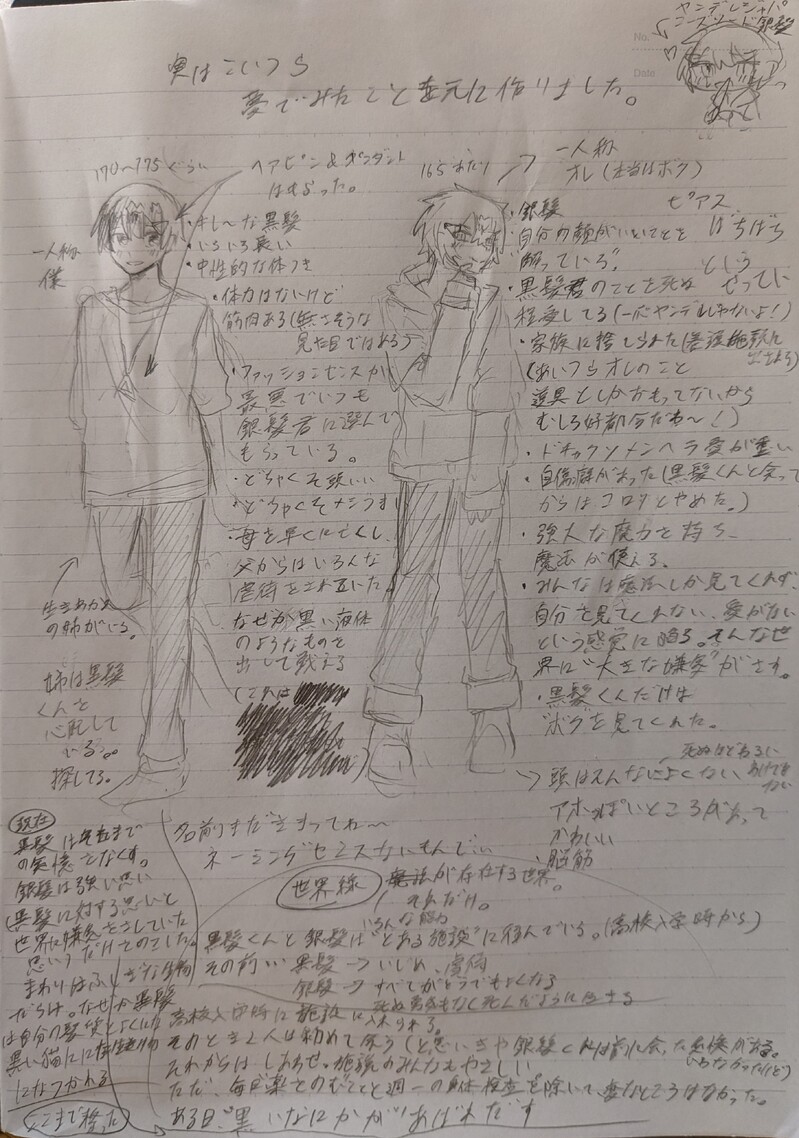 ヤンデレジャパ
ニーズソード銀髪
No.
Date
実はこいつら
夢でみたことを元に作りました。
170〜175ぐらい
ヘアピン&ペンダント
はもらった。
165あたり
一人称
オレ(本当はボク)
一人称
僕
・キレーな黒髪
・いろいろ長い
・中性的な体つき
・体力はないけど
筋肉ある(無さそうな
見た目ではある)
・ファッションセンスが
最悪でいつも
銀髪君に選んで
もらっている。
・どちゃくそ頭いい
・どちゃくそ
・母を早くに亡くし、
父からはいろんな
虐待をされていた
なぜか黒い液体
のようなものを
出して戦える
(これは
生きわかれ
の姉がいる。
姉は黒髪
くんを
心配して
いる。
探してる。
・銀髪
ピアス
ばちばち
・自分の顔がいいことを
"解っている"。
・黒髪君のことを死ぬ
程愛してる(一応ヤンデレじゃないよ!)
・家族に捨てられた(養護施設に
(あいつらオレのこと
道具としかおもってないから
むしろ好都合だわ〜!)
・ドチャクソメンヘラ愛が重い
・自傷癖があった(黒髪くんと会って
からはコロッとやめた。)
・強大な魔力を持ち、
魔法が使える。
・みんなは魔法しか見てくれず、
自分を見てくれない、愛がない
という感覚に陥る。そんな世
界に"大きな嫌気"がさす。
・黒髪くんだけは
"ボク"を見てくれた。
→頭はそんなによくない
アホっぽいところがあって
かわいい
・脳筋
名前まだきまってね〜
ネーミングセンスないもんでい
世界線
魔法が存在する世界。
それだけ。
いろんな能力
黒髪くんと銀髪は"とある施設"に住んでいる。(高校入学時から)
その前… 黒髪→いじめ、虐待
銀髪→すべてがどうでもよくなる
死ぬ勇気もなく死んだように生きる
高校入学時に施設に入れられる。
そのとき2人は初めて会う(と思いきや銀髪くんは前に会った記憶がある。
それからはしあわせ。施設のみんなもやさしい
ただ、毎日薬をのむことと週一の身体検査を除いて、変なところはなかった。
ある日、"黒いなにかが"あばれだす
現在
黒髪は今まで
の記憶をなくす。
銀髪は強い思い
(黒髪に対する思いと
世界に嫌気をさしていた
思い)だけをのこした。
まわりはふしぎな生物
だらけ。なぜか黒髪
は自分の髪質とよくにた
黒い猫に
になつかれる
ここまで捗った